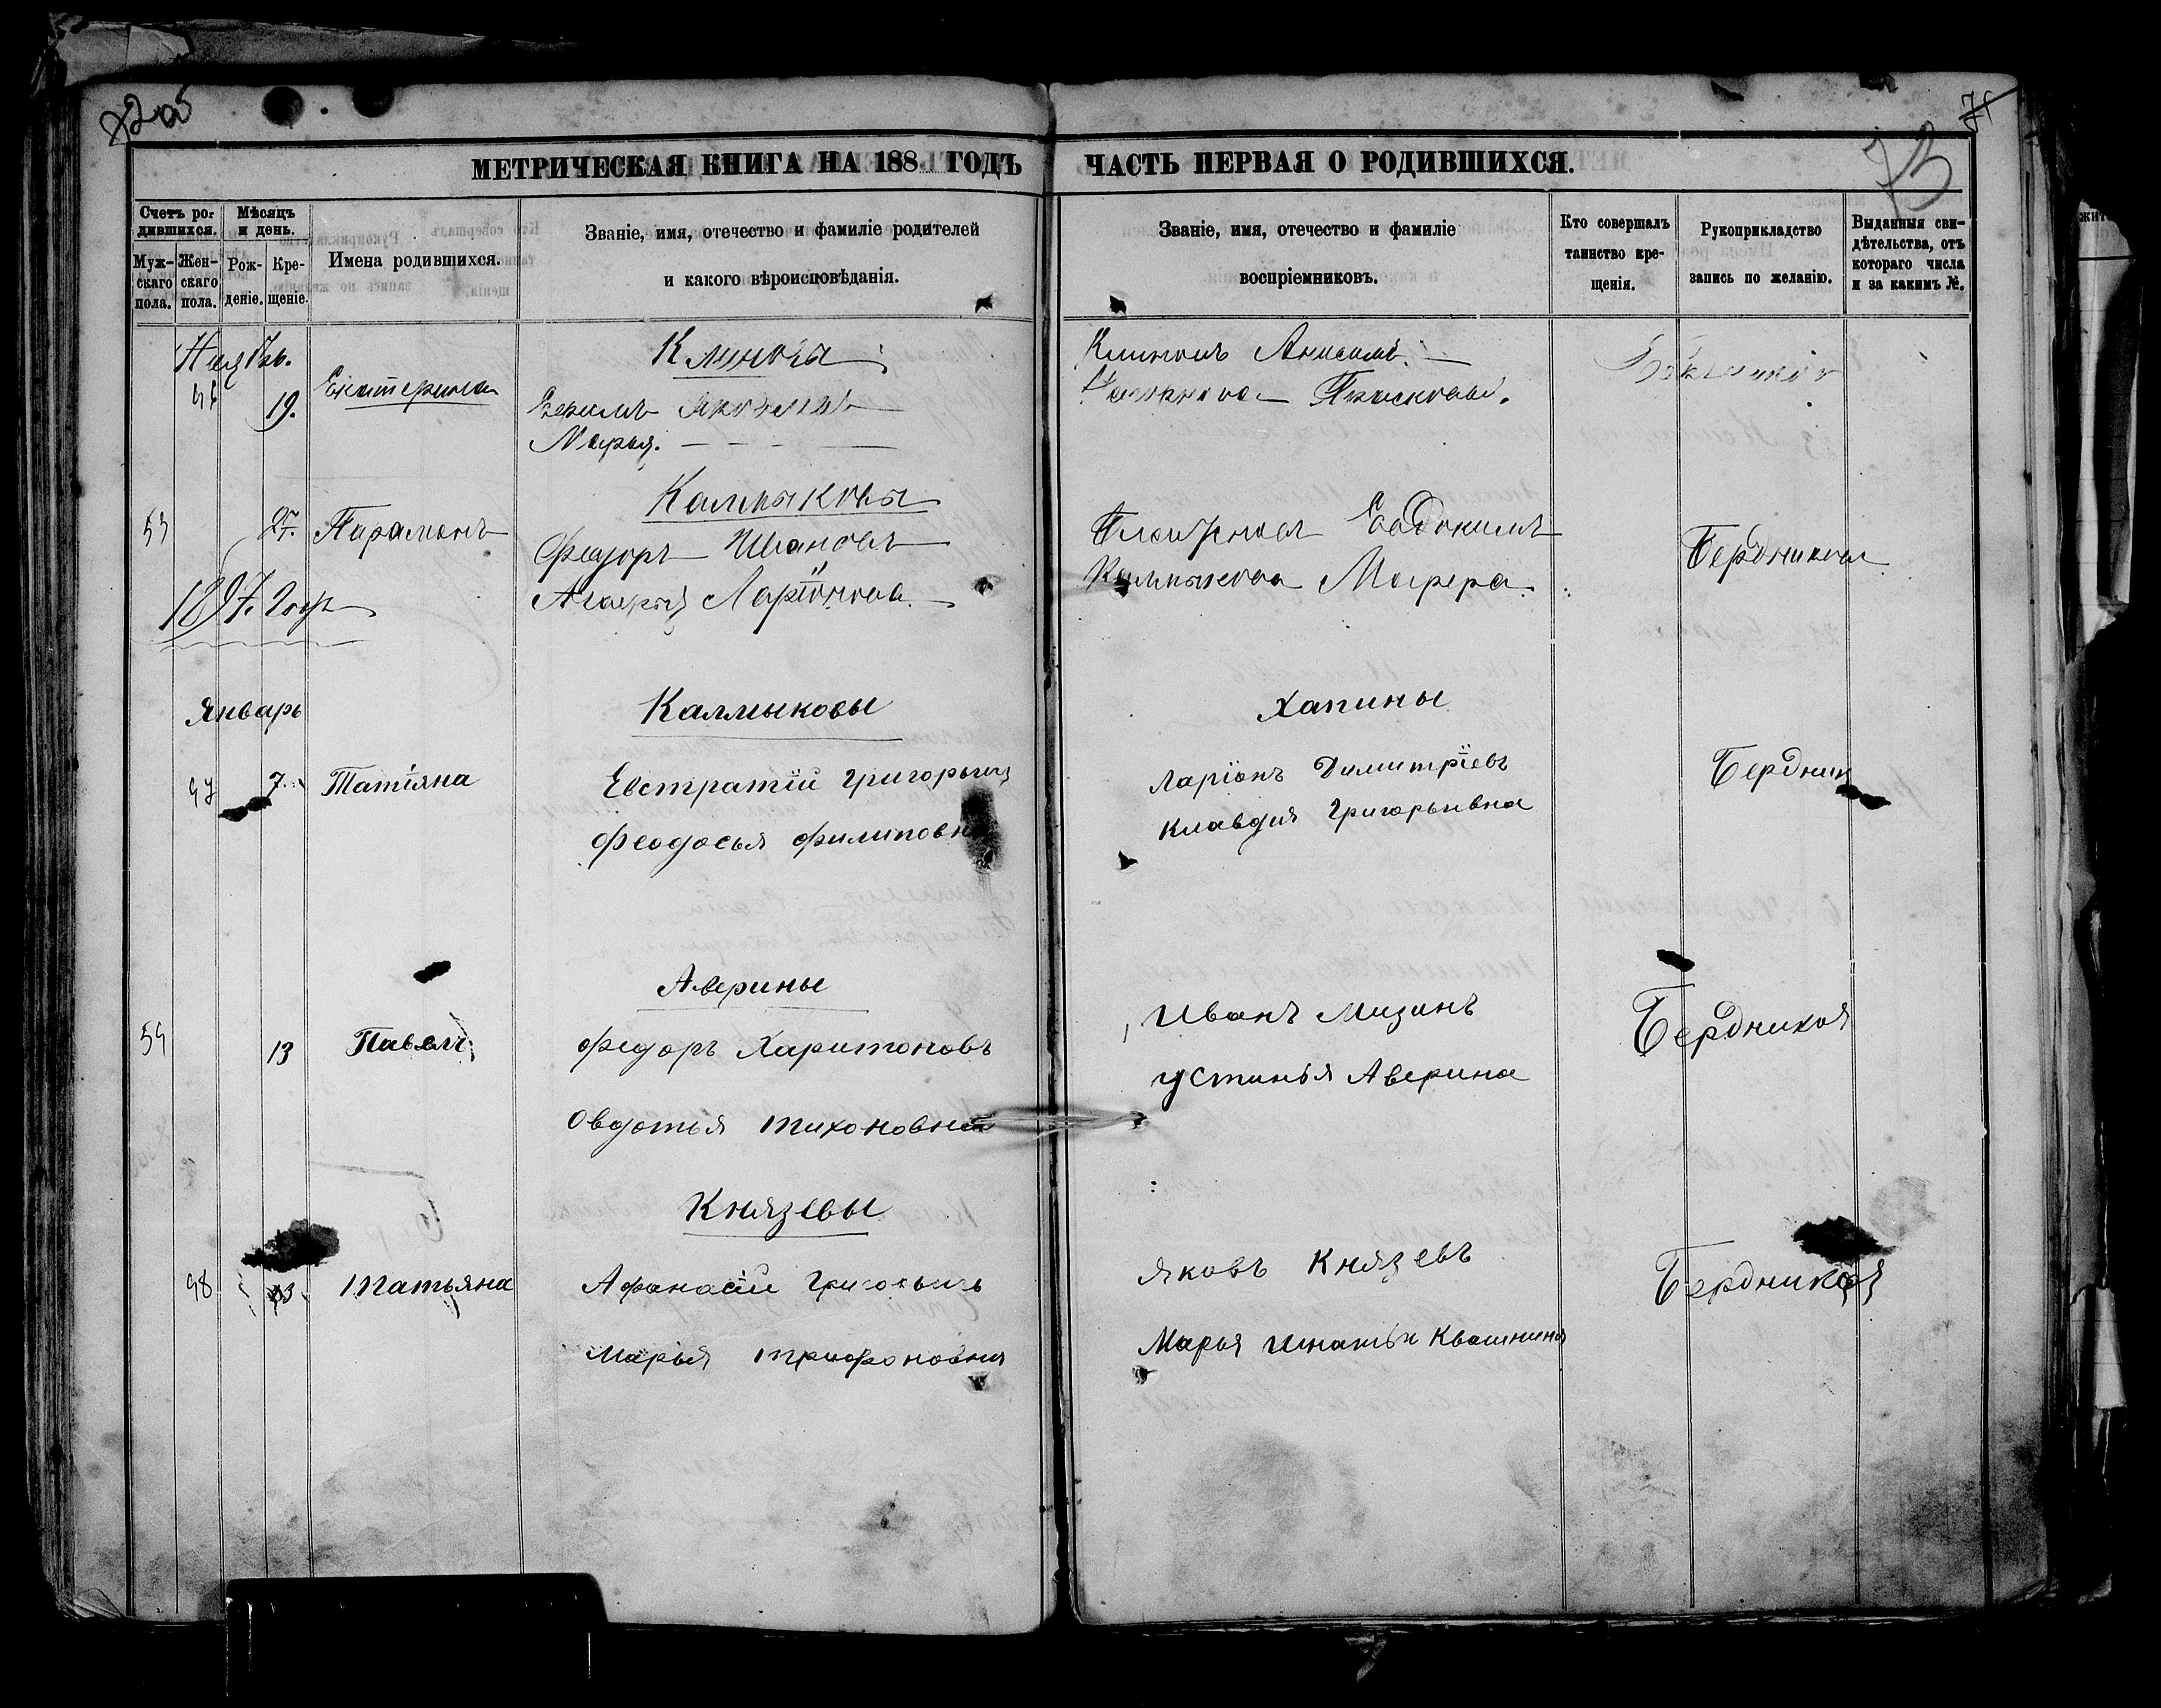 71
73
МЕТРИЧЕСКАЯ КНИГА НА 188 ГОДЪ
ЧАСТЬ ПЕРВАЯ О РОДИВШИХСЯ.
Счетъ ро-
дившихся.
Муж-
скаго
пола.
Жен-
скаго
пола.
Мѣсяцъ
и день.
Рож-
деніе.
Кре-
щеніе.
Имена родившихся.
Званіе, имя, отечество и фамиліе родителей
и какого вѣроисповѣданія.
Званіе, имя, отечество и фамиліе
воспріемниковъ.
Кто совершалъ
таинство кре-
щенія.
Рукоприкладство
запись по желанію.
Выданныя сви-
дѣтельства, отъ
котораго числа
и за какимъ №.
Ноябрь.
46 19. Екатерина
Климовы
Яковлевъ
Марья.
Климовъ Анисимъ.
53 27. Парамонъ
Калмыковы
Федоръ Ивановъ
Агафья Ларіонова.
Евдокимъ
Калмыкова Марфа.
Бердниковъ
1897. года
Январь
47 7. Татіяна
Калмыковы
Евстратій Григорьичъ
Феодосья Филиповна
Хапины
Ларіонъ Димитріевъ
Клавдия Григорьивна
Бердник
54 13 Павелъ
Аверины
Федоръ Харитоновъ
Овдотья Тихоновна
Иванъ Мизинъ
Устинья Аверина
Бердникоя
48 13 Татьяна
Князевы
Афанасій Григорьичъ
Марья Трифоновна
Яковъ Князевъ
Марья Игнатьи Квашнина
Бердникоя